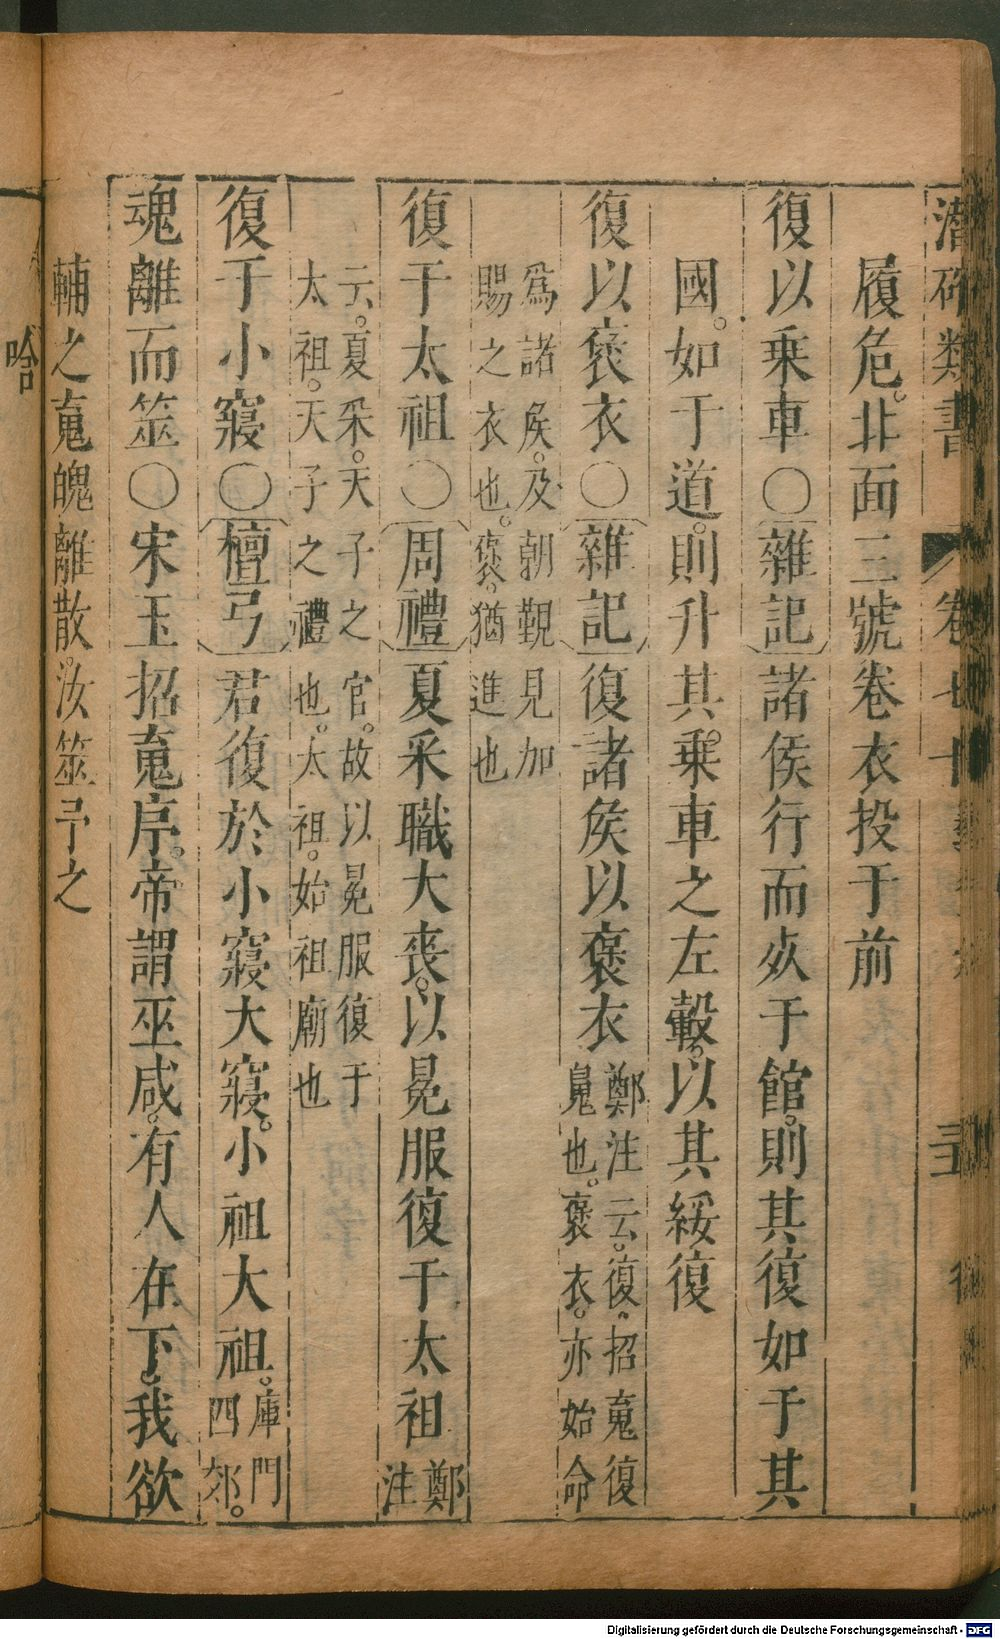 潛確類書 卷七十 三五 復
履危。北面三號卷衣投于前
復以乗車○雜記諸侯行而死于館。則其復如于其
國。如于道。則升其乗車之左轂。以其綏復
復以褒衣○雜記復諸侯以褒衣鄭注云。復。招䰟復䰟也。褒衣。亦始命
爲諸侯。及朝覲見加賜之衣也。褒。猶進也
復于太祖○周禮夏采職大喪。以冕服復于太祖鄭注
云。夏采。天子之官。故以冕服復于太祖。天子之禮也。太祖。始祖廟也
復于小寢○檀弓君復於小寢大寢。小祖大祖。庫門四郊。
魂離而筮○宋玉招䰟序。帝謂巫咸。有人在下。我欲
輔之䰟魄離散。汝筮予之
啥
Digitalisierung gefördert durch die Deutsche Forschungsgemeinschaft - DFG